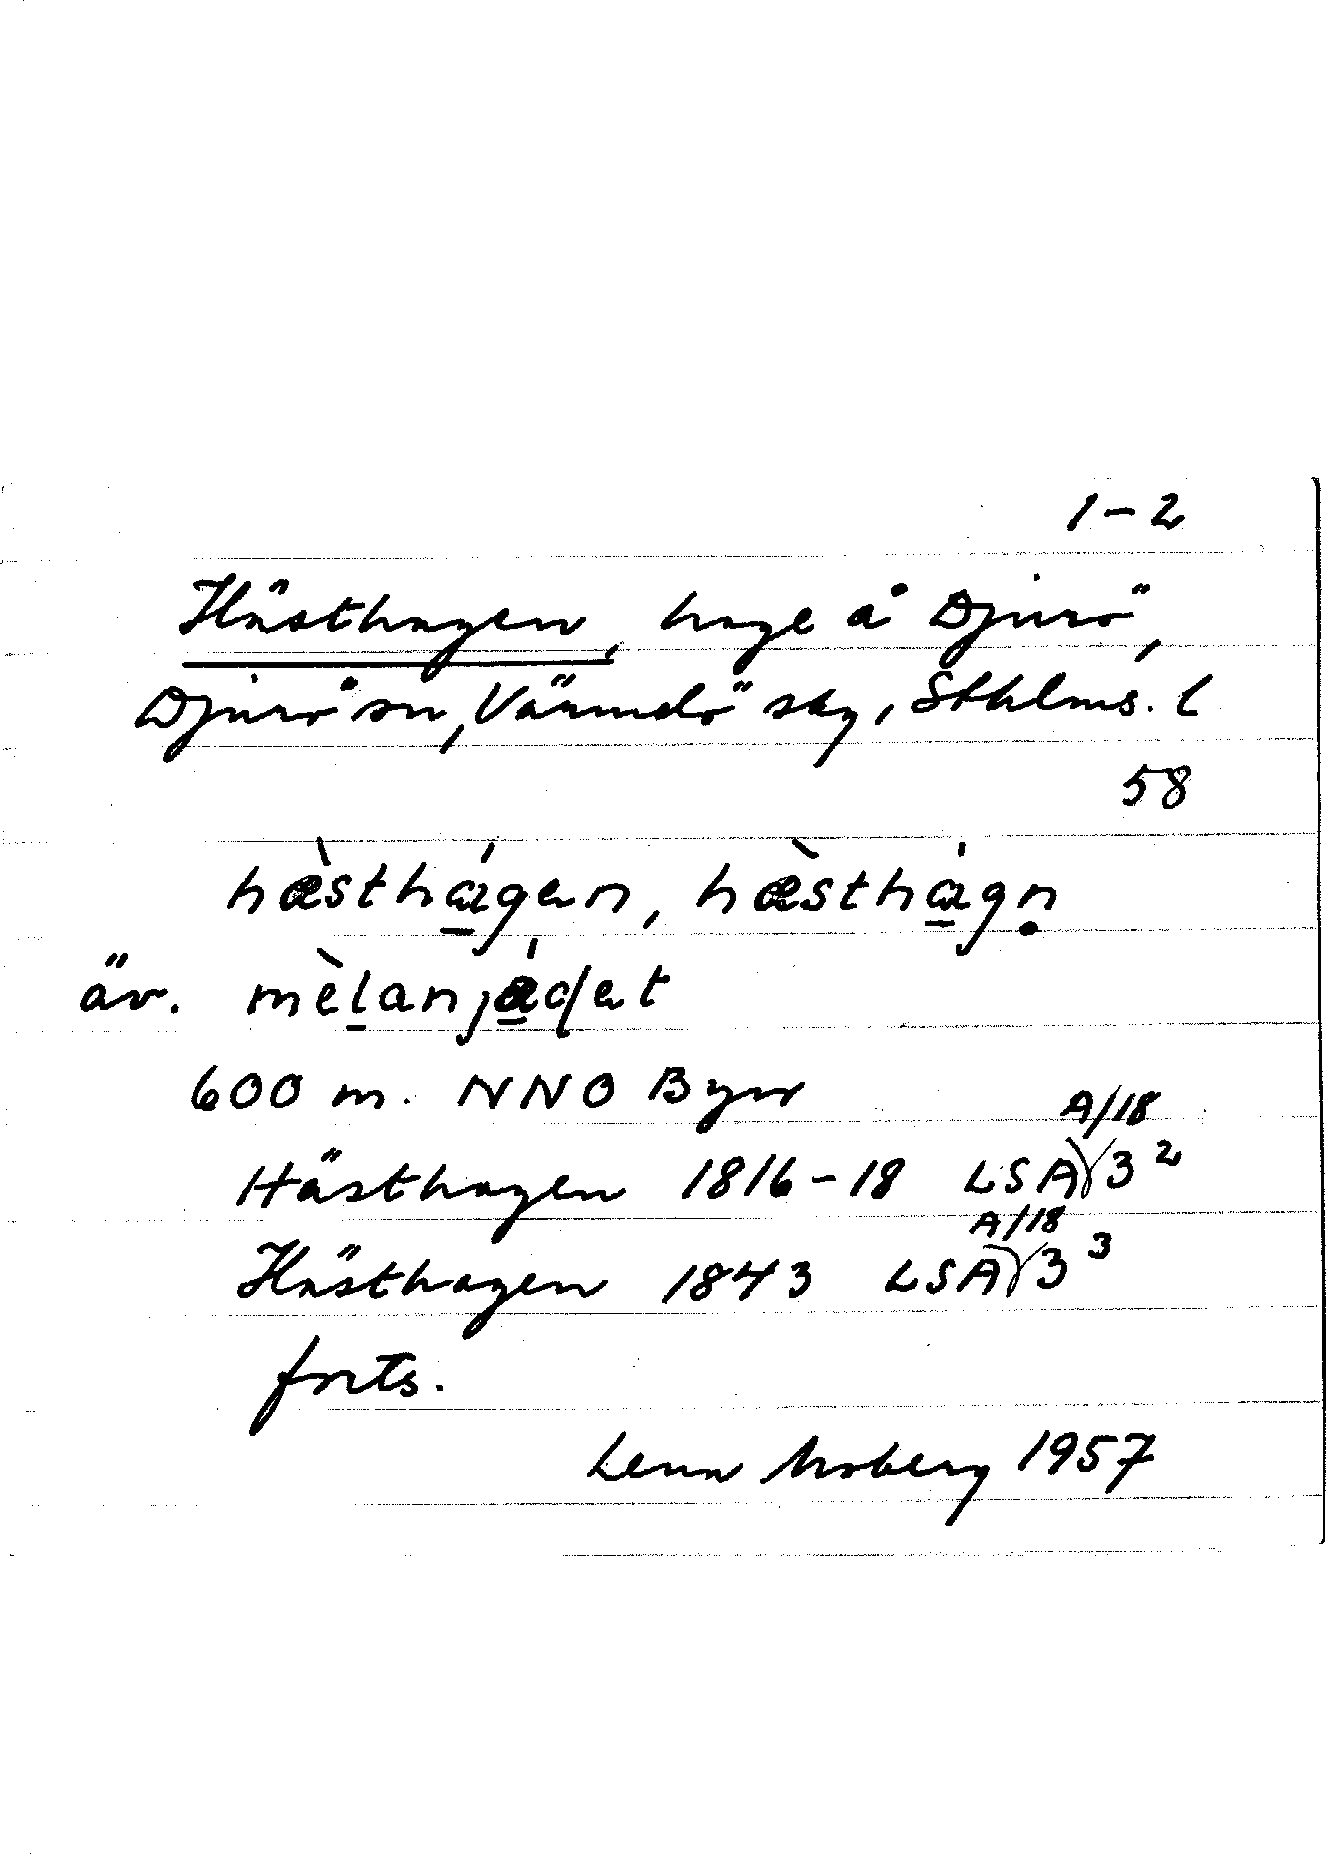 1–2
Hästhagen, hage å Djurö,
Djurö sn, Värmdö skg, Sthlms. l
58
hæ̀sthá̱gen, hæ̀sthá̱gṇ
äv. mèḻanjǽ̱det
600 m. NNO Byn
A/18
Hästhagen 1816–18 LSA 3²
A/18
Hästhagen 1843 LSA 3³
forts.
Lena Moberg 1957